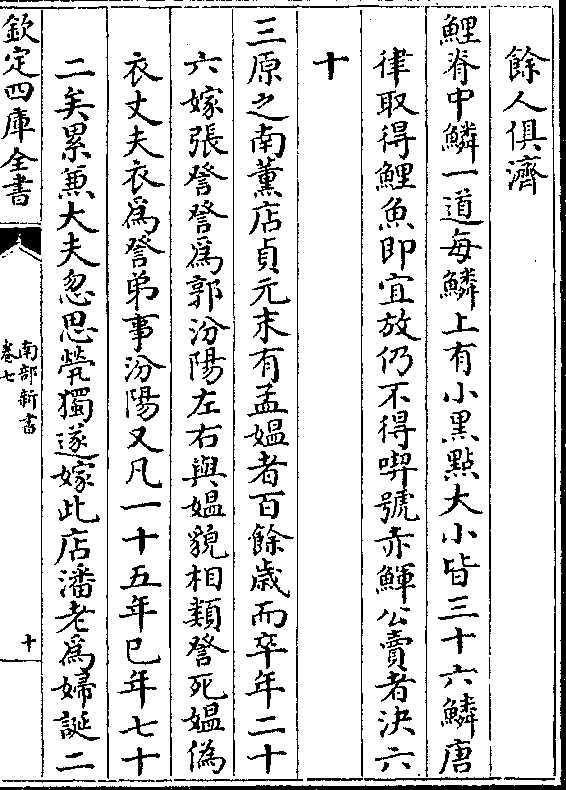 餘人俱濟
鯉脊中鱗一道每鱗上有小黒㸃大小皆三十六鱗唐
律取得鯉魚即宜放仍不得喫號赤鯶公賣者決六
十
三原之南薫店貞元末有孟媪者百餘歳而卒年二十
六嫁張詧詧為郭汾陽左右與媪貌相類詧死媪偽
衣丈夫衣為詧弟事汾陽又凡一十五年已年七十
二矣累兼大夫忽思煢獨遂嫁此店潘老為婦誕二
欽定四庫全書
南部新書
卷七
十